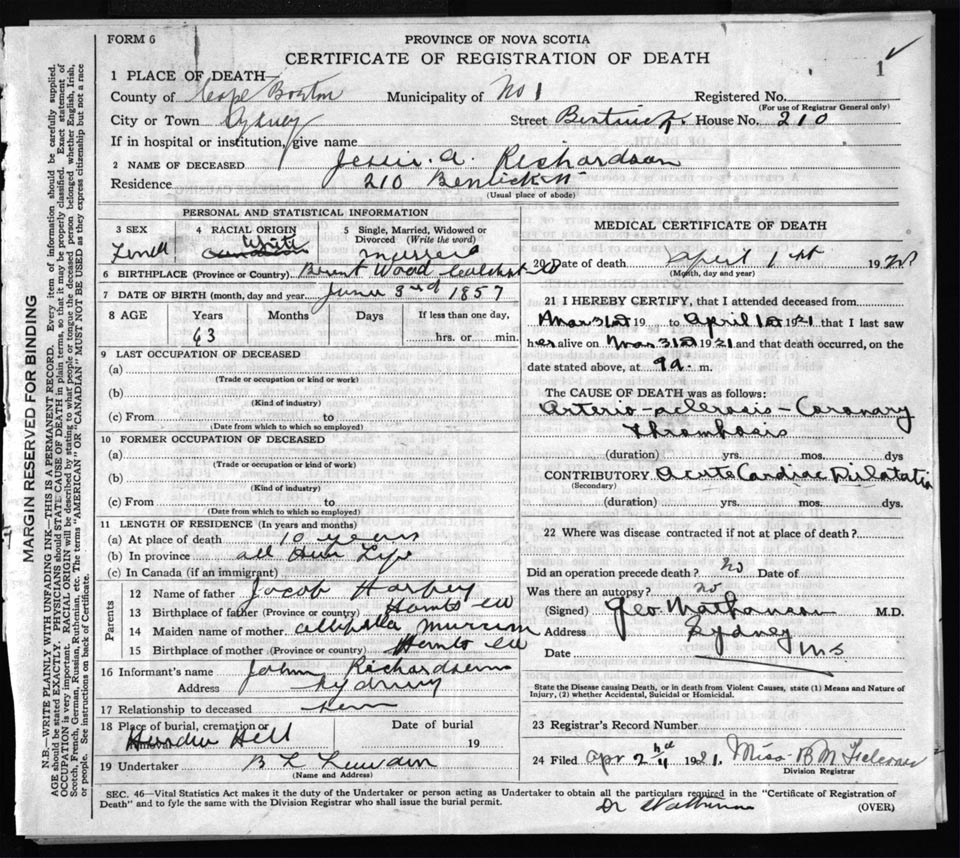 FORM 6
PROVINCE OF NOVA SCOTIA
CERTIFICATE OF REGISTRATION OF DEATH
1
1 PLACE OF DEATH—
County of Cape Breton Municipality of No 1 Registered No.
(For use of Registrar General only)
City or Town Sydney Street House No. 210
If in hospital or institution, give name
2 NAME OF DECEASED Jessie. A. Richardson
Residence 210 Bentick St
(Usual place of abode)
PERSONAL AND STATISTICAL INFORMATION
3 SEX
4 RACIAL ORIGIN
White
5 Single, Married, Widowed or Divorced (Write the word)
6 BIRTHPLACE (Province or Country) Brent Wood
7 DATE OF BIRTH (month, day and year) June 3rd 1857
8 AGE Years Months Days If less than one day,
63
hrs. or min.
9 LAST OCCUPATION OF DECEASED
(a)
(Trade or occupation or kind or work)
(b)
(Kind of industry)
(c) From to
(Date from which to which so employed)
10 FORMER OCCUPATION OF DECEASED
(a)
(Trade or occupation or kind of work)
(b)
(Kind of industry)
(c) From to
(Date from which to which so employed)
11 LENGTH OF RESIDENCE (In years and months)
(a) At place of death 10 years
(b) In province all Her Life
(c) In Canada (if an immigrant)
Parents
12 Name of father Jacob Harpey
13 Birthplace of father (Province or country) Hants
14 Maiden name of mother
15 Birthplace of mother (Province or country) Hants
16 Informant's name John Richardson
Address Sydney
17 Relationship to deceased
18 Place of burial, cremation or Date of burial
removal Hardw Hill 19
19 Undertaker B L
(Name and Address)
MEDICAL CERTIFICATE OF DEATH
20 Date of death April 1st 192
(Month, day and year)
21 I HEREBY CERTIFY, that I attended deceased from
Mar 31st 19 to April 1st 1921 that I last saw
her alive on Mar. 31st 1921 and that death occurred, on the
date stated above, at 9 a. m.
The CAUSE OF DEATH was as follows:
Arterio-sclerosis - Coronary
Thrombosis
(duration) yrs. mos. dys
CONTRIBUTORY Acute Cardiac Dilatatio
(Secondary)
(duration) yrs. mos. dys.
22 Where was disease contracted if not at place of death?
Did an operation precede death? No Date of
Was there an autopsy? No
(Signed) Geo. M.D.
Address Sydney
Date NS
State the Disease causing Death, or in death from Violent Causes, state (1) Means and Nature of
Injury, (2) whether Accidental, Suicidal or Homicidal.
23 Registrar's Record Number
24 Filed Apr 2nd 1921. Miss B M
Division Registrar
SEC. 46—Vital Statistics Act makes it the duty of the Undertaker or person acting as Undertaker to obtain all the particulars required in the "Certificate of Registration of
Death" and to fyle the same with the Division Registrar who shall issue the burial permit.
(OVER)
Dr
MARGIN RESERVED FOR BINDING
N.B.—WRITE PLAINLY WITH UNFADING INK—THIS IS A PERMANENT RECORD. Every item of information should be carefully supplied.
AGE should be stated EXACTLY. PHYSICIANS should STATE CAUSE OF DEATH in plain terms, so that it may be properly classified. Exact statement of
OCCUPATION is very important. RACIAL ORIGIN will be described by stating to what people or tongue the deceased person belonged whether English, Irish,
Scotch, French, German, Russian, Ruthenian, etc. The terms "AMERICAN" OR "CANADIAN" MUST NOT BE USED as they express citizenship but not a race
or people. See instructions on back of Certificate.